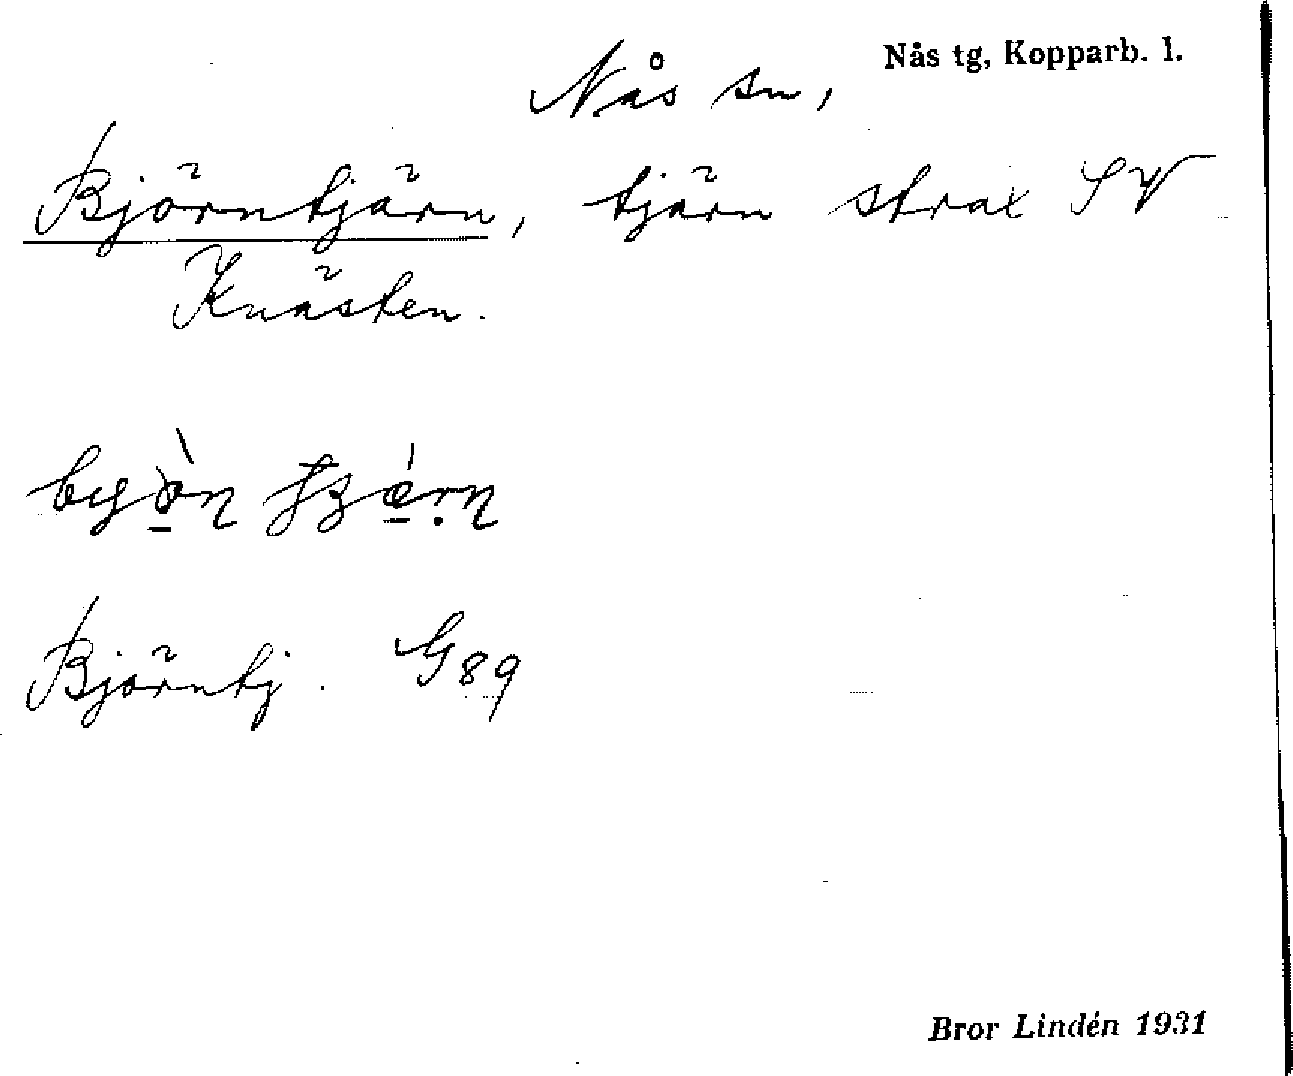 Nås tg, Kopparb. l.
Nås sn,
Björntjärn, tjärn strax SV
Knästen.
Björntj. G89
Bror Lindén 1931